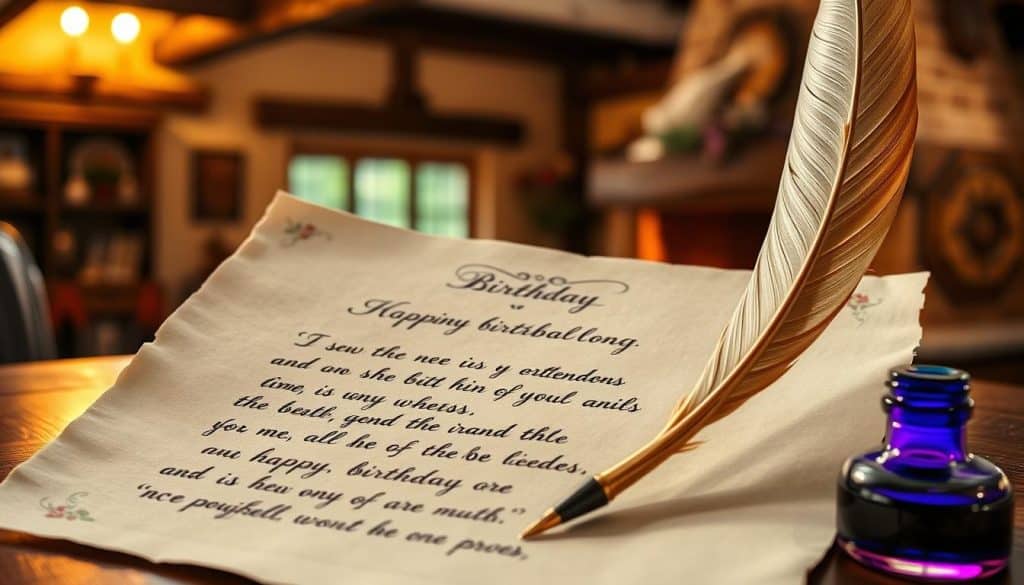 Birthday
Happiny birtbballong.
"I sew the nee is y ortlendons
and ow she bitt hin of youl anils
time, is wny whetss,
the beatt, gend the irand thle
you me, all he of the be liedes,
aur happy, birthday ore
and is hew ony of are muth."
"nce powjbell, wont he one proes,